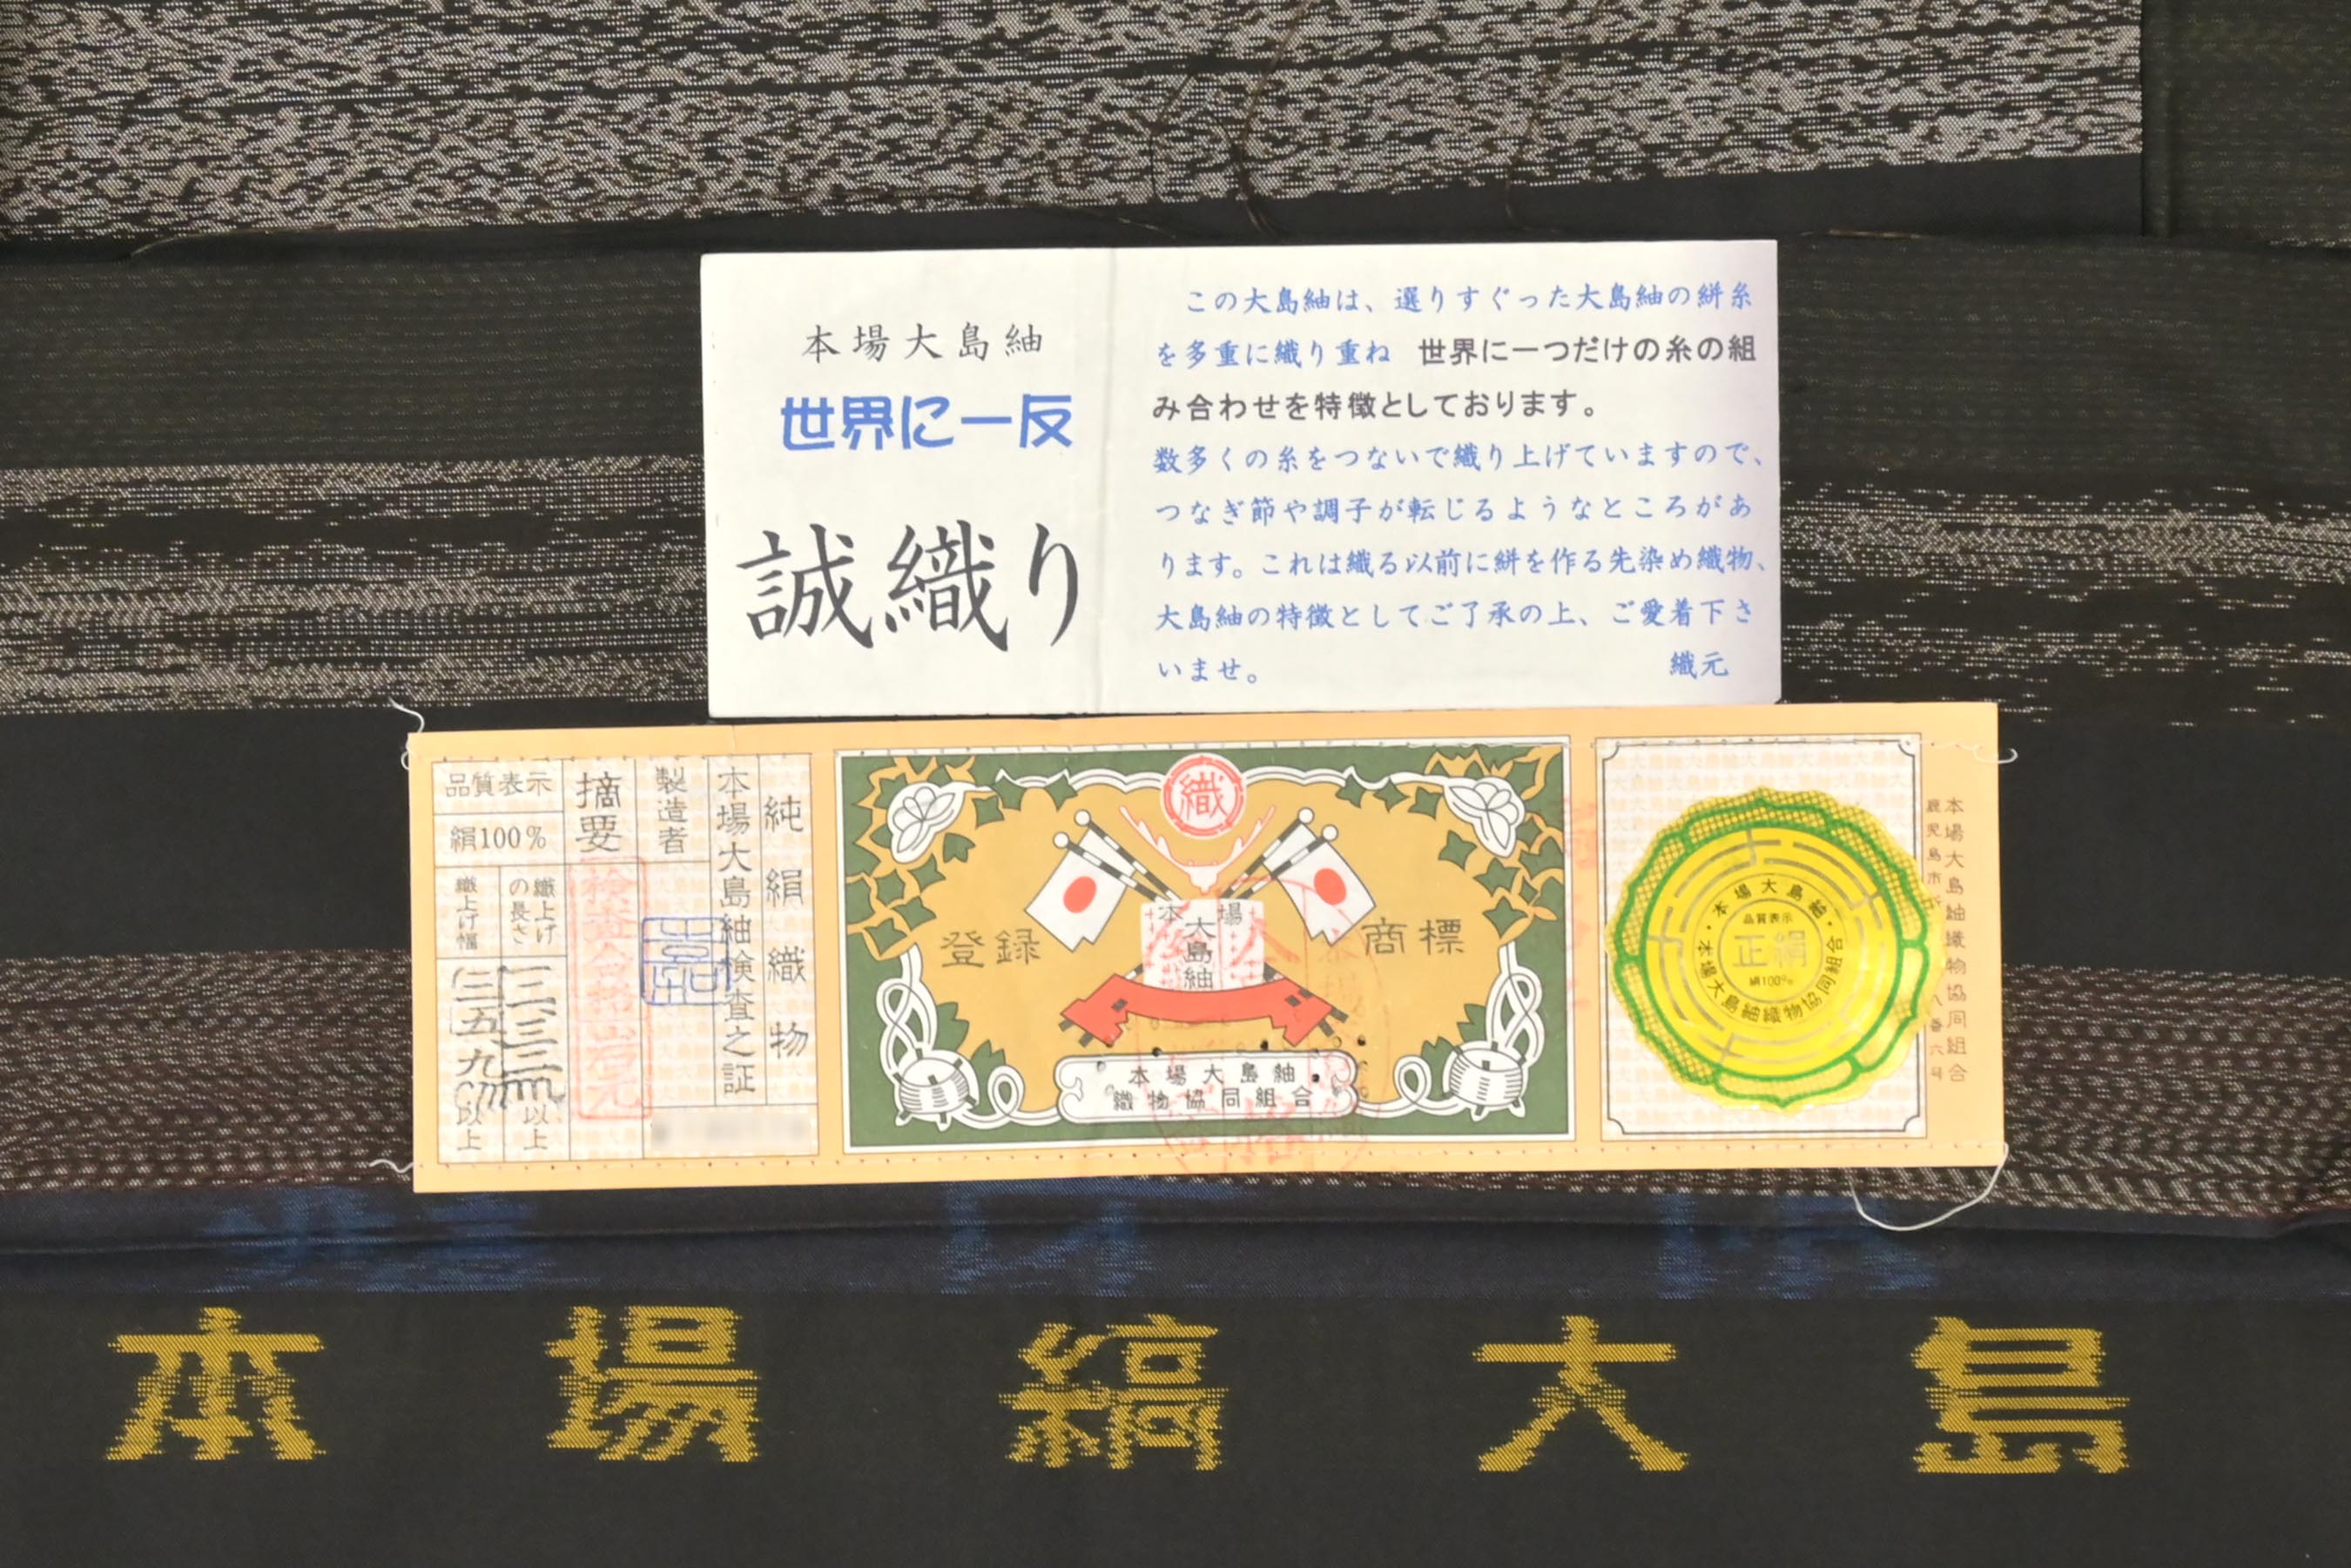 本場大島紬
世界に一反
誠織り
この大島紬は、選りすぐった大島紬の絣糸
を多重に織り重ね 世界に一つだけの糸の組
み合わせを特徴としております。
数多くの糸をつないで織り上げていますので、
つなぎ節や調子が転じるようなところがあ
ります。これは織る以前に絣を作る先染め織物、
大島紬の特徴としてご了承の上、ご愛着下さ
いませ。
織元
純絹織物
本場大島紬検査之証
製造者
摘要
品質表示
絹100%
織上げ
の長さ
以上
織上げ幅
三五、九cm
以上
織
登録
商標
本場
大島紬
本場大島紬
織物協同組合
本場大島紬
品質表示
正絹
絹100%
本場大島紬織物協同組合
本場大島紬織物協同組合
鹿児島市
本場縞大島